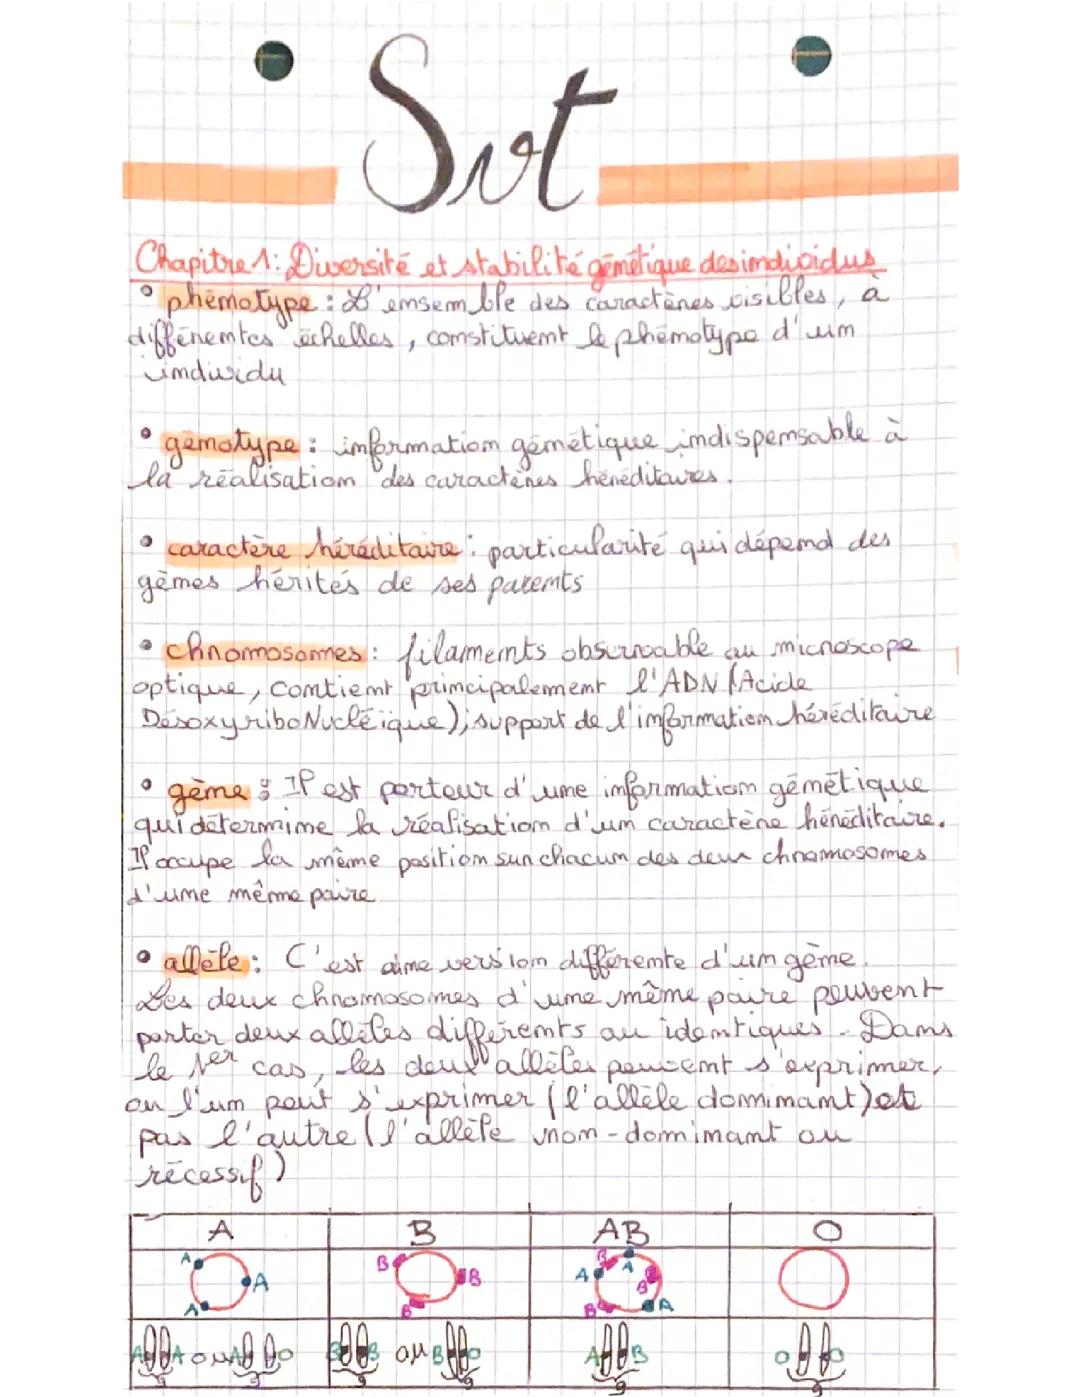 Svt
Chapitre 1: Diversité et stabilité génétique des individus
• phénotype : L'ensemble des caractères visibles, à
différentes échelles, constituent le phénotype d'un
individu
• génotype : information génétique indispensable à
la réalisation des caractères héréditaires.
• caractère héréditaire : particularité qui dépend des
gènes hérités de ses parents
• chromosomes : filaments observable au microscope
optique, contient principalement l'ADN (Acide
DésoxyriboNucléique), support de l'information héréditaire
• gène : Il est porteur d'une information génétique
qui détermine la réalisation d'un caractère héréditaire.
Il occupe la même position sur chacun des deux chromosomes
d'une même paire
• allèle : C'est une version différente d'un gène.
Les deux chromosomes d'une même paire peuvent
porter deux allèles différents ou identiques. Dans
le 1er cas, les deux allèles peuvent s'exprimer,
ou l'un peut s'exprimer (l'allèle dominant) et
pas l'autre (l'allèle non-dominant ou
récessif)
A B AB O
A A A B B B B A A B B A
A A ou A O B B ou B O A B O O
9 9 9 9 9 9